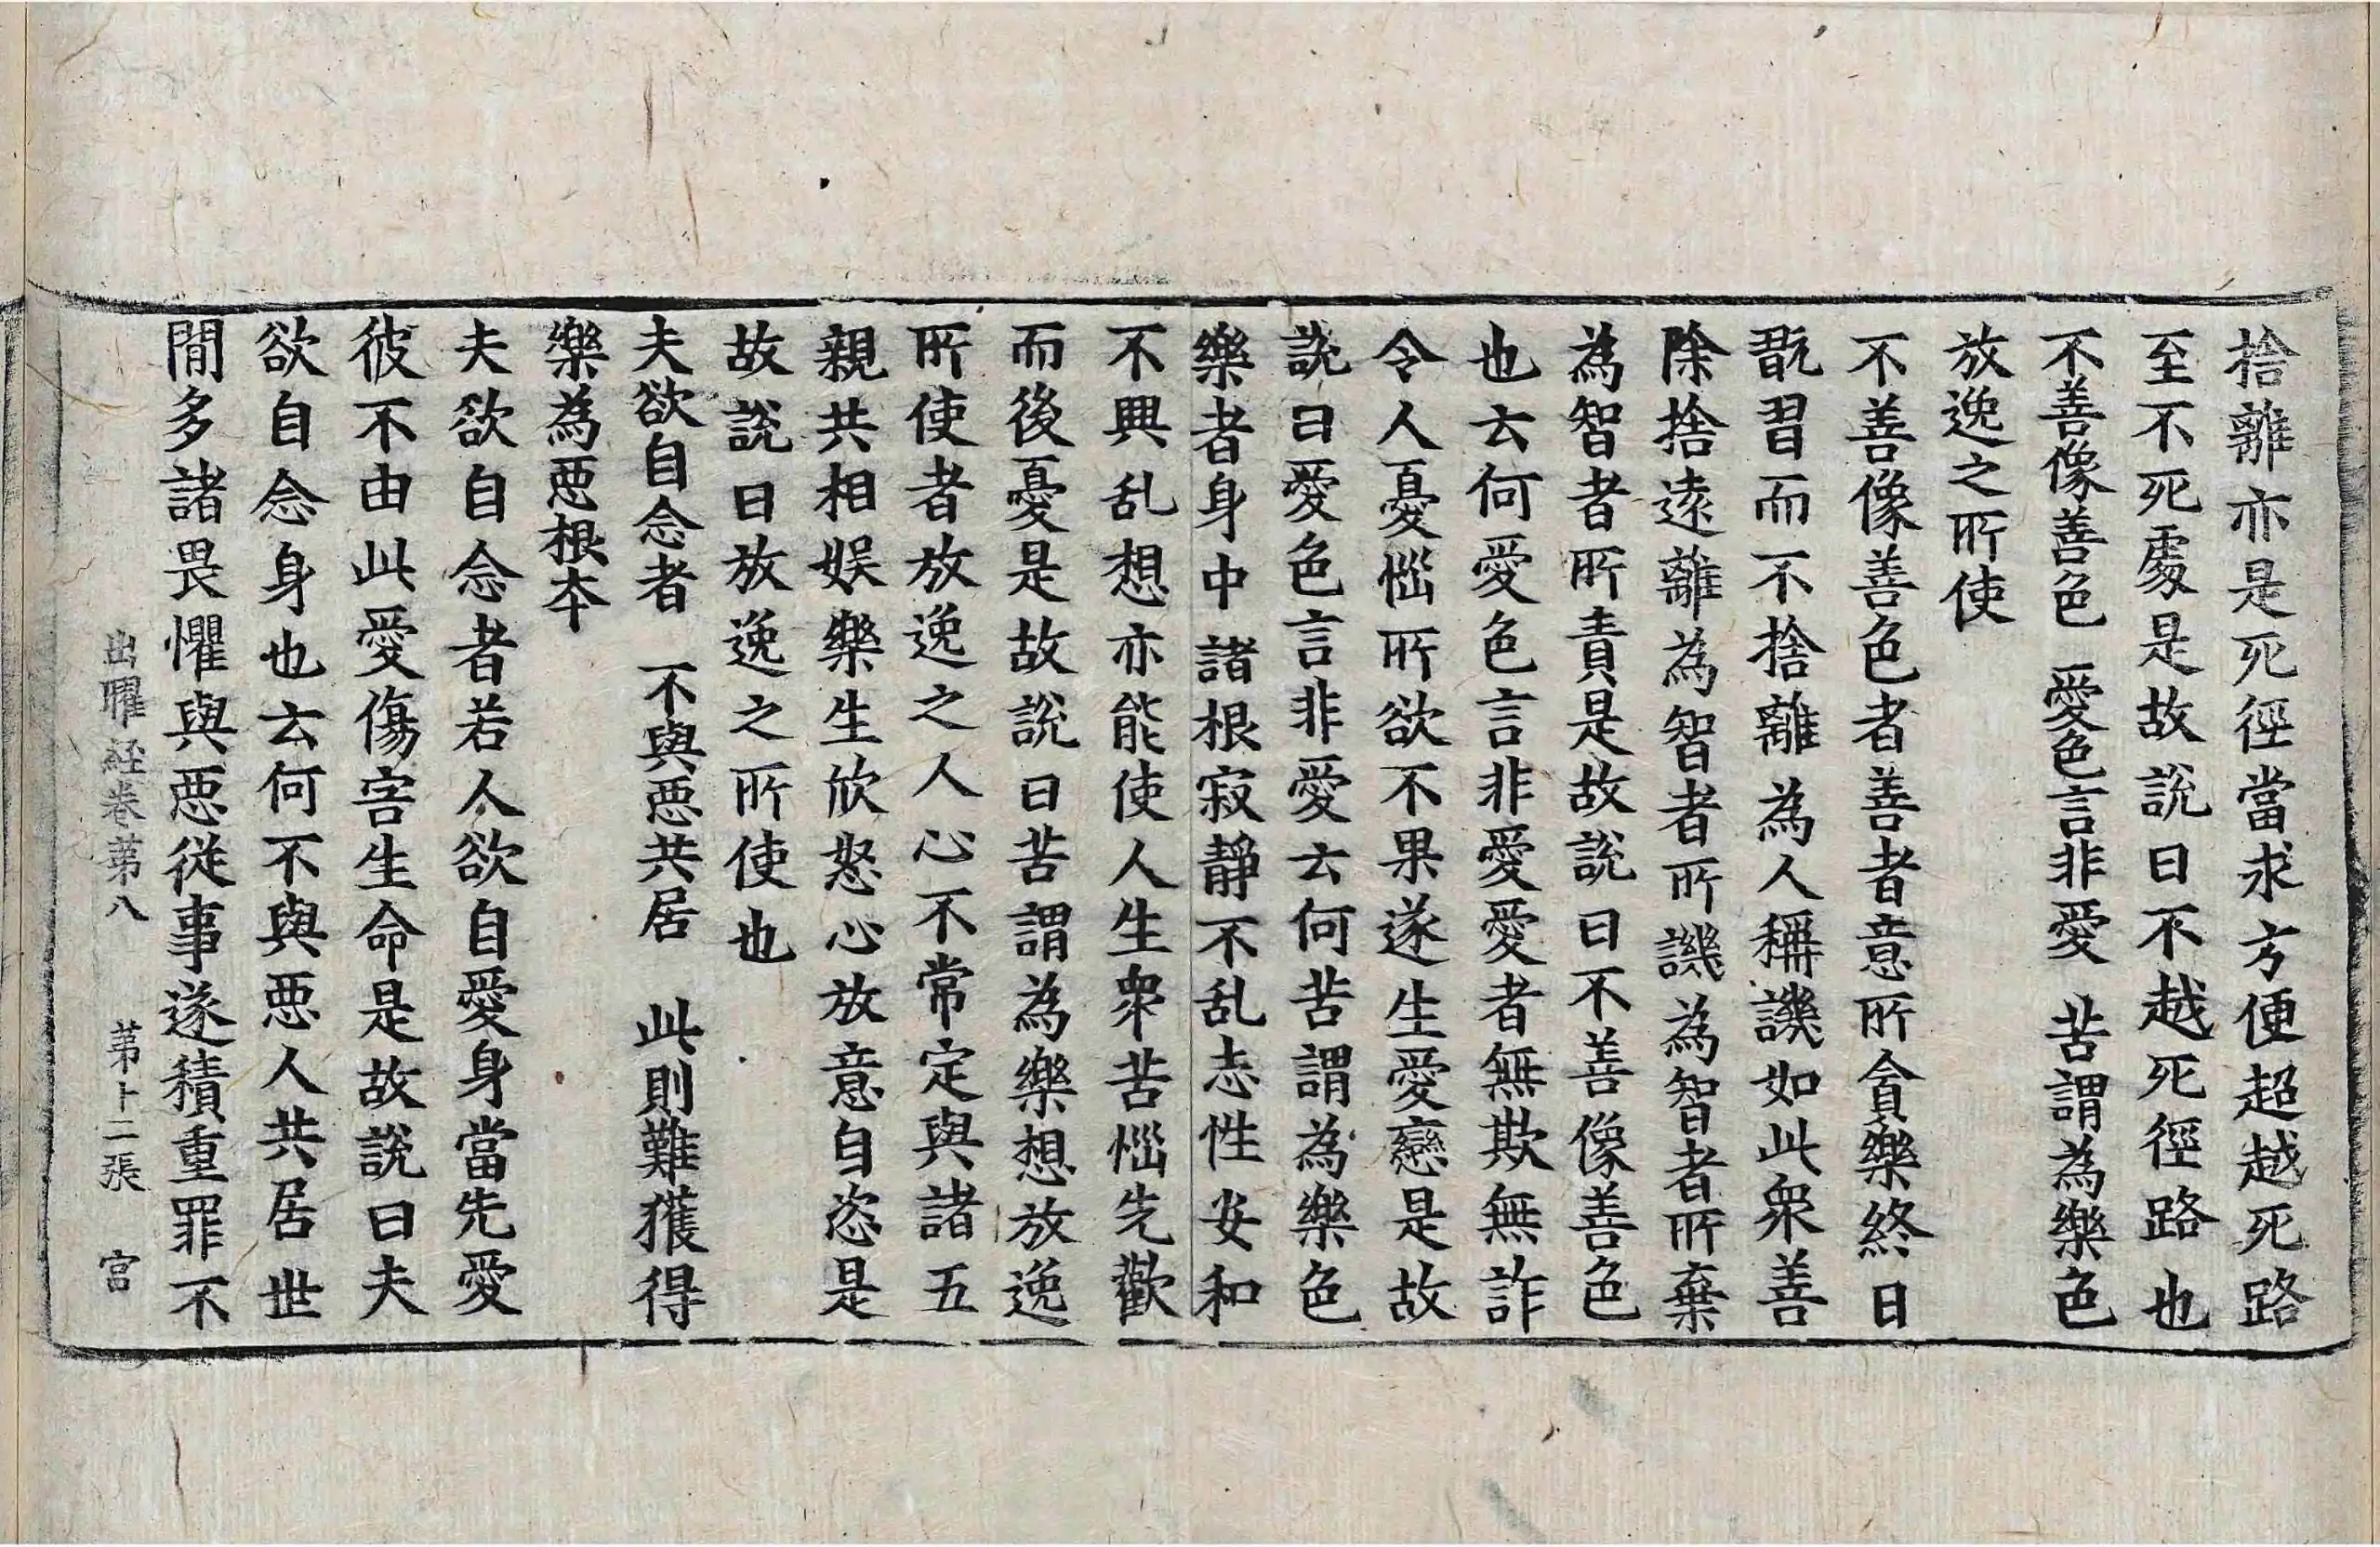 捨離亦是死徑當求方便超越死路
至不死處是故說曰不越死徑路也
不善像善色　愛色言非愛　苦謂為樂色
放逸之所使
不善像善色者善者意所貪樂終日
翫習而不捨離為人稱譏如此衆善
除捨遠離為智者所譏為智者所棄
為智者所責是故說曰不善像善色
也云何愛色言非愛愛者無欺無詐
令人憂惱所欲不果遂生愛戀是故
說曰愛色言非愛云何苦謂為樂色
樂者身中諸根寂靜不乱志性安和
不興乱想亦能使人生衆苦惱先歡
而後憂是故說曰苦謂為樂想放逸
所使者放逸之人心不常定與諸五
親共相娛樂生欣怒心放意自恣是
故說曰放逸之所使也
夫欲自念者　不與惡共居　此則難獲得
樂為惡根本
夫欲自念者若人欲自愛身當先愛
彼不由此愛傷害生命是故說曰夫
欲自念身也云何不與惡人共居世
間多諸畏懼與惡從事遂積重罪不
出曜経卷第八　第十二張　宮